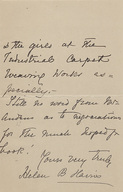 & the girls at the
Industrial Carpet
Weaving Works es-
pecially.-
Still no word from Mr.
as to negociations
for the much hoped for
book!
Yours very truly
Helen B Harris